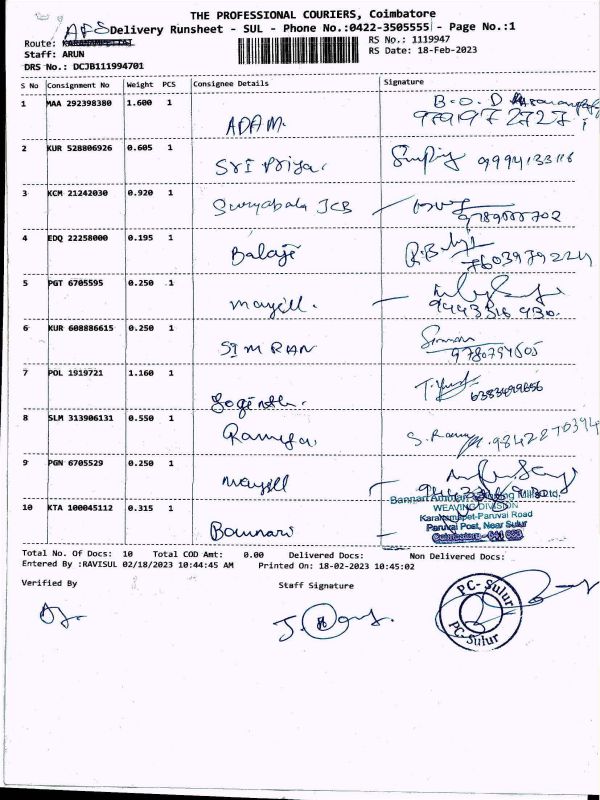 THE PROFESSIONAL COURIERS, Coimbatore
AFS Delivery Runsheet - SUL - Phone No.:0422-3505555 - Page No.:1
Route:
RS No.: 1119947
Staff: ARUN
RS Date: 18-Feb-2023
DRS No.: DCJB111994701
S No Consignment No Weight PCS Consignee Details Signature
1 MAA 292398380 1.600 1 ADAM. B.O.D
9791972727
2 KUR 528806926 0.605 1 Sri Priya. 9994133116
3 KCM 21242030 0.920 1 Suryabala JCB
4 EDQ 22258000 0.195 1 Balaji
7603979224
5 PGT 6705595 0.250 1 mayill.
9443316930.
6 KUR 608886615 0.250 1 SIMRAN Simran
7 POL 1919721 1.160 1
8 SLM 313906131 0.550 1 Ramya. 9842870394
9 PGN 6705529 0.250 1 mayill
10 KTA 100045112 0.315 1 Bannari
Bannari Amman Spinning Mills Ltd.
WEAVING DIVISION
Karanampet-Paruvai Road
Paruvai Post, Near Sulur
Coimbatore - 641 658
Total No. Of Docs: 10 Total COD Amt: 0.00 Delivered Docs: Non Delivered Docs:
Entered By :RAVISUL 02/18/2023 10:44:45 AM Printed On: 18-02-2023 10:45:02
Verified By Staff Signature
PC-Sulur
PC-Sulur